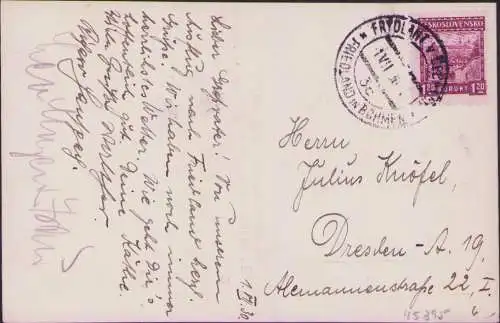 Lieber Großvater! Von unserem
Ausflug nach Friedland herzl.
Grüße. Wir haben noch immer
herrlichstes Wetter. Wie geht Dir's
hoffentlich gut. Deine Käthe.
Viele Grüße
1. VII. 30.
FRÝDLANT V
FRIEDLAND in BÖHMEN
ČESKOSLOVENSKO
1.20 1.20
Herrn
Julius Knöfel,
Dresden-A. 19,
Alemannenstraße 22, I.
45395